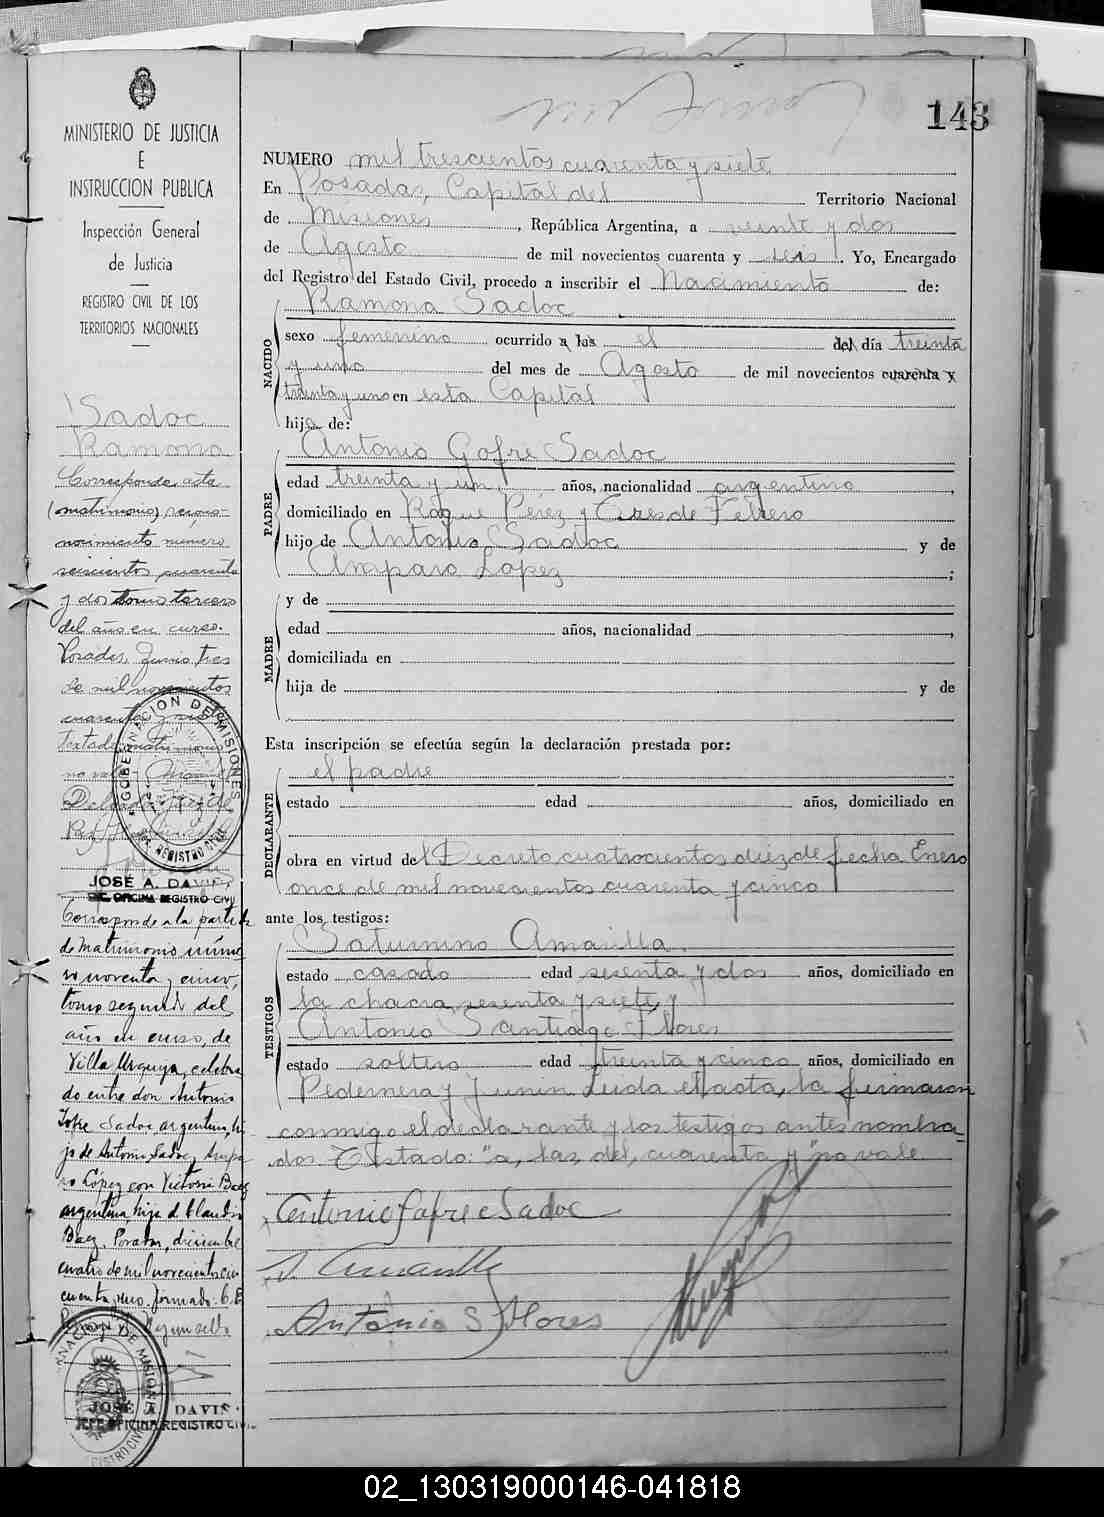 143
MINISTERIO DE JUSTICIA
E
INSTRUCCION PUBLICA
Inspección General
de Justicia
REGISTRO CIVIL DE LOS
TERRITORIOS NACIONALES
Sadoc
Ramona
Corresponde esta
(matrimonio) recono-
nocimiento número
seiscientos cuarenta
y dos tomo tercero
del año en curso.
Posadas, Junio tres
de mil novecientos
cuarenta y siete
Testado: matrimonio
no vale
GOBERNACION DE MISIONES
REGISTRO CIVIL
JOSÉ A. DAVIS
OFICINA REGISTRO CIVIL
Corresponde a la partida
de matrimonio núme
ro noventa y cinco,
tomo segundo del
año en curso, de
Villa Urquiza, celebra
do entre don Antonio
Jofre Sadoc argentino, hi-
jo de Antonio Sadoc, Ampa
ro López con Victoria Baez
argentina, hija de Claudio
Baez. Posadas, diciembre
cuatro de mil novecientos cin
cuenta y uno. firmado:
GOBERNACION DE MISIONES
JOSÉ A. DAVIS
JEFE OFICINA REGISTRO CIVIL
NUMERO mil trescientos cuarenta y siete
En Posadas, Capital del Territorio Nacional
de Misiones, República Argentina, a veinte y dos
de Agosto de mil novecientos cuarenta y seis. Yo, Encargado
del Registro del Estado Civil, procedo a inscribir el Nacimiento de:
NACIDO
Ramona Sadoc
sexo femenino ocurrido a las el del día treinta
y uno del mes de Agosto de mil novecientos cuarenta y
treinta y uno en esta Capital
hija de:
PADRE
Antonio Gofre Sadoc
edad treinta y un años, nacionalidad argentino,
domiciliado en Roque Pérez y Tres de Febrero
hijo de Antonio Sadoc y de
Amparo Lopez;
MADRE
y de
edad años, nacionalidad,
domiciliada en
hija de y de
Esta inscripción se efectúa según la declaración prestada por:
DECLARANTE
el padre
estado edad años, domiciliado en
obra en virtud del Decreto cuatrocientos diez de fecha Enero
once de mil novecientos cuarenta y cinco
ante los testigos:
TESTIGOS
Saturnino Amarilla.
estado casado edad sesenta y dos años, domiciliado en
la chacra sesenta y siete, y
Antonio Santiago Flores
estado soltero edad treinta y cinco años, domiciliado en
Pedernera y Junin. Leida el acta, la firmaron
conmigo el declarante y los testigos antes nombra-
dos. Testado: "a, las, del, cuarenta y" no vale.
Antonio Gofre Sadoc
S. Amarilla
Antonio S Flores
02_130319000146-041818